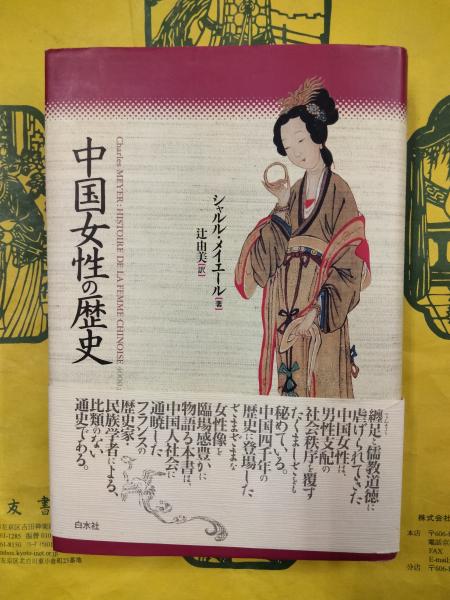 中国女性の歴史
Charles MEYER: HISTOIRE DE LA FEMME CHINOISE
シャルル・メイエール[著]
辻由美[訳]
纏足と儒教道徳に
虐げられてきた
中国女性は、
男性支配の
社会秩序を覆す
たくましさをも
秘めている。
中国四千年の
歴史に登場した
さまざまな
女性像を
臨場感豊かに
物語る本書は、
中国人社会に
通暁した
フランスの
歴史家・
民族学者による、
比類のない
通史である。
白水社
友
書
株式会社
左京区吉田神楽
本店
〒606-8
FAX
E-mail
左京区北白川東小倉町23番地
分店
〒606-8